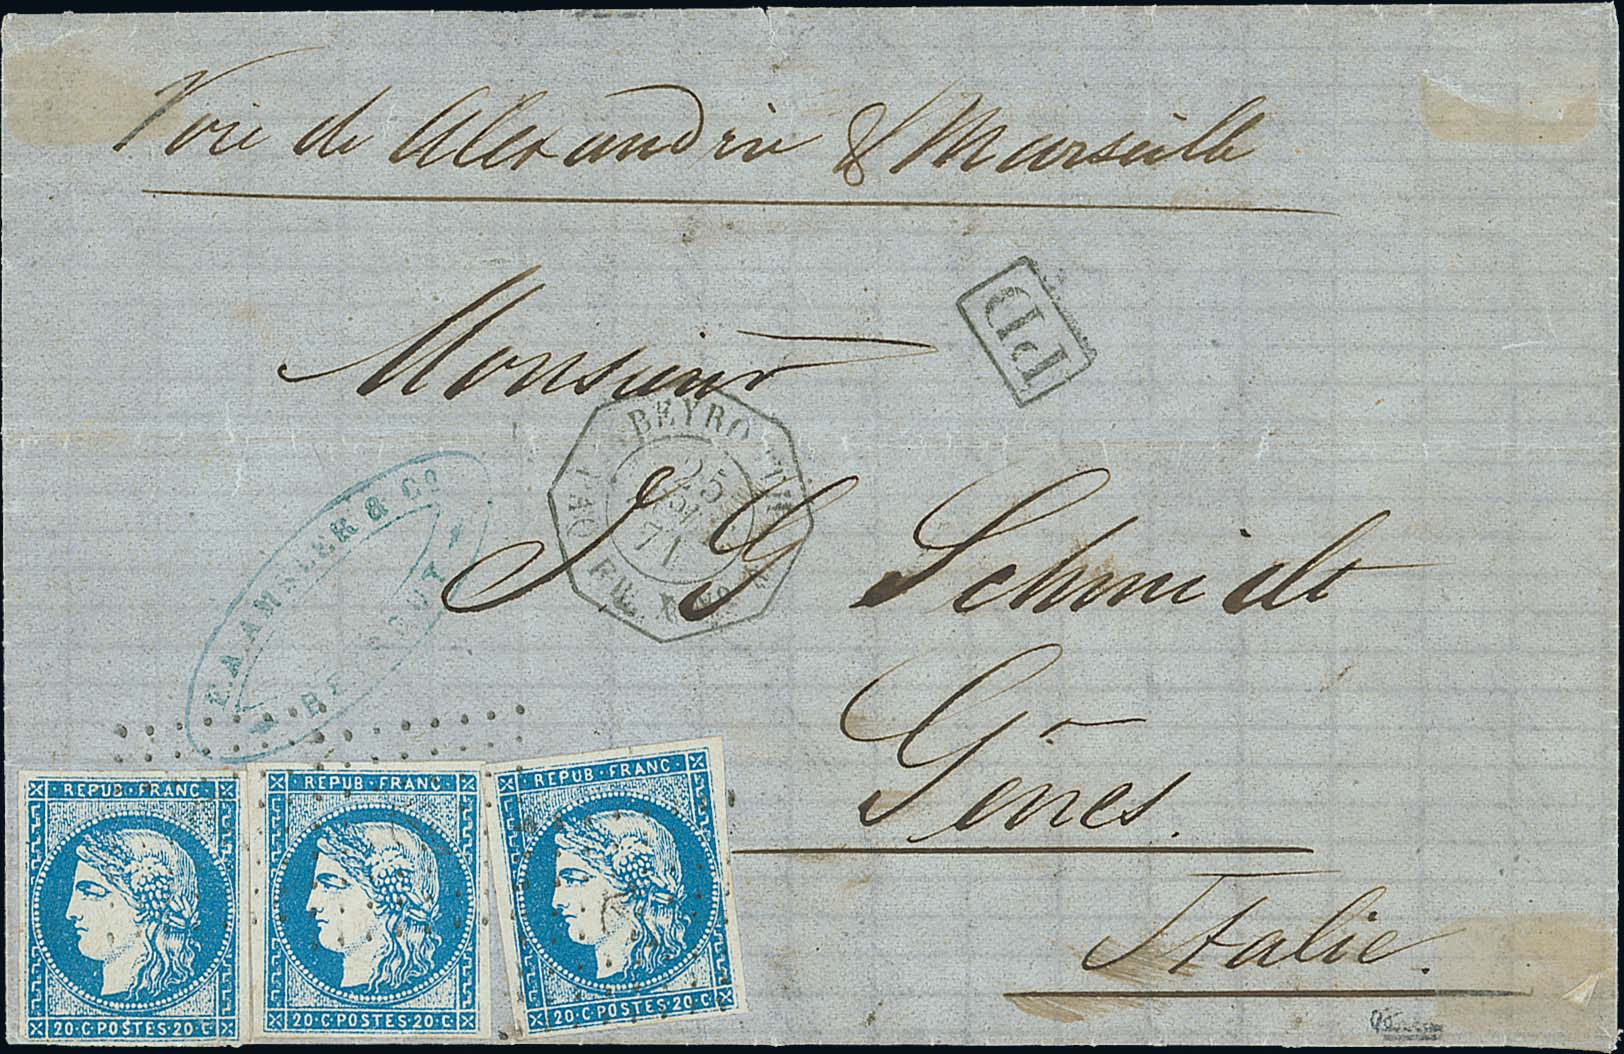 Voie de Alexandrie & Marseille
PD
Monsieur
BEYROUTH
25
71
J G Schmidt
& Co
Gênes.
Italie.
REPUB·FRANC
20·C·POSTES·20·C
REPUB·FRANC
20·C·POSTES·20·C
REPUB·FRANC
20·C·POSTES·20·C